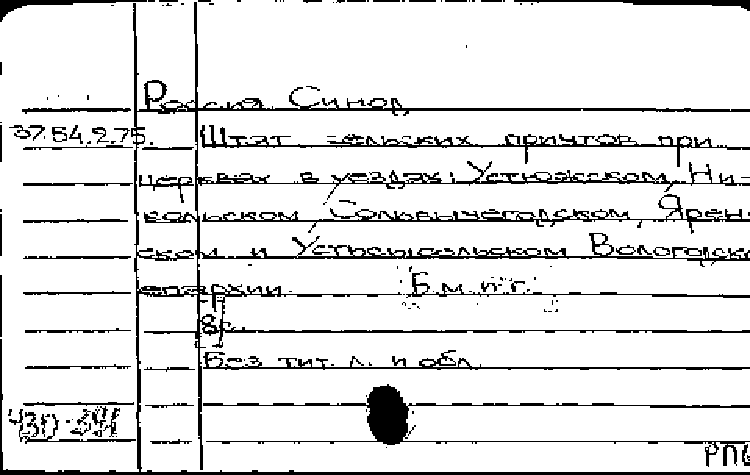 Россия Синод
37.54.2.75. Штат сельских причтов при
церквах в уездах: Устюжском, Ни-
кольском, Сольвычегодском, Ярен-
ском и Устьсысольском Вологодско
епархии. Б.м. и г.
8с.
Без тит. л. и обл.
РПБ